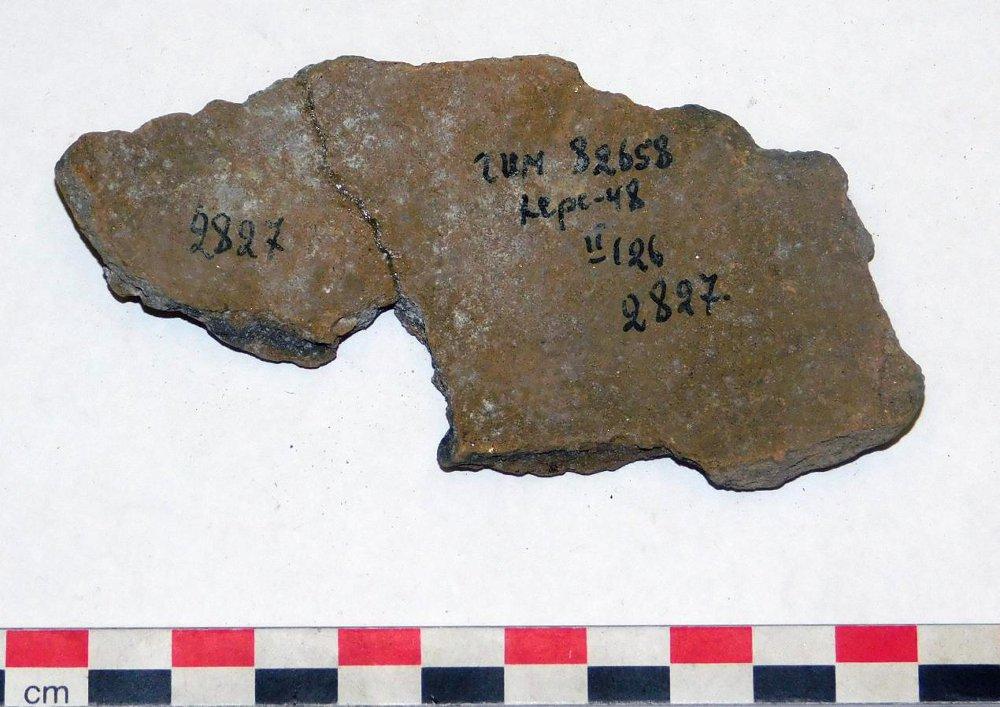 2827
ГИМ 82658
Керс-48
II 126
2827.
cm